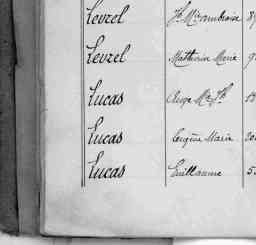 Levrel
Levrel Mathurin Marie 9
Lucas Ange Me Jh 15
Lucas Eugène Marie 20
Lucas Guillaume 5